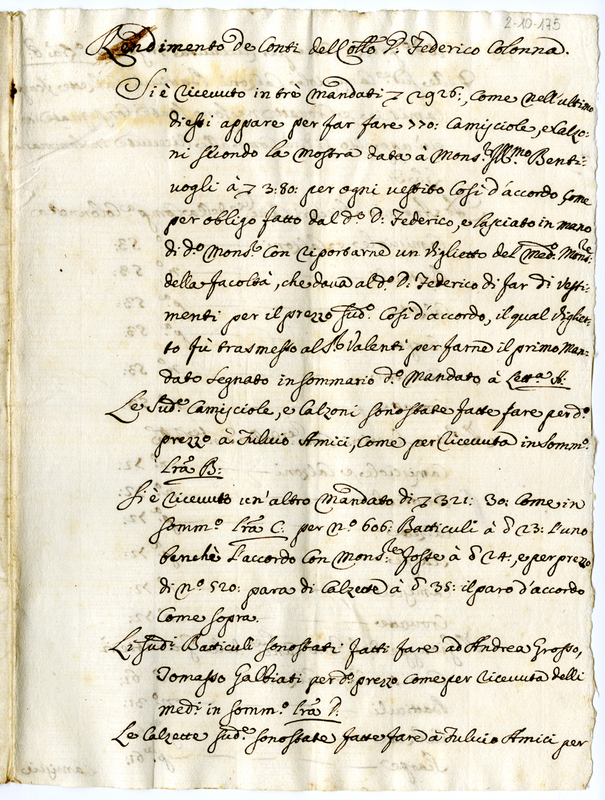 2-10-175
Rendimento de Conti dell Otto D. Federico Colonna.
Si è ricevuto in tre Mandati 2926: Come nell'ultimo
di essi appare per far fare 770: Camisciole, e Calzo=
ni secondo la mostra data à Mons. Ill.mo Benti=
vogli à 3:80: per ogni vestito Così d'accordo Come
per obligo fatto dal d.o D: Federico, e lasciato in mano
di d.o Mons.re con riportarne un viglietto del med.o Mons.re
della facoltà, che dava al d.o D: Federico di far di vesti=
menti per il prezzo sud.o Così d'accordo, il qual vigliet=
to fù trasmesso al Valenti per farne il primo Man=
dato segnato in sommario d.o Mandato à Lett.a A.
Le Sud.e Camisciole, e Calzoni sono state fatte fare per d.o
prezzo à Fulvio Amici, Come per ricevuta in Somm.o
Lrã B:
Si è ricevuto un'altro Mandato di 321: 30: Come in
Somm.o Lrã C. per n.o 606: Batticuli à 23: l'uno
benchè l'accordo con Mons.re fosse à 24:, e per prezzo
di n.o 520: para di Calzette à 35: il paro d'accordo
Come sopra.
Li sudi Batticuli sono stati fatti fare ad Andrea Grosso,
Tomasso Galbiati per d.o prezzo Come per ricevuta delli
medi in Somm.o Lrã D.
Le Calzette sud.e sono state fatte fare à Fulvio Amici per